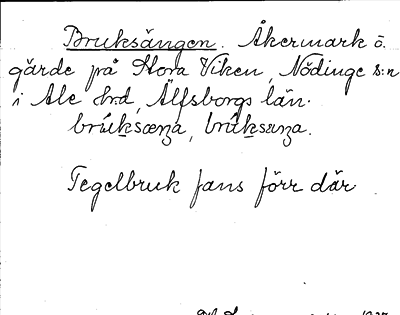 Bruksängen. Åkermark o.
gärde på Stora Viken, Nödinge s:n
i Ale hrd, Älfsborgs län.
brúksæŋa, brúksæŋa.
Tegelbruk fans förr där